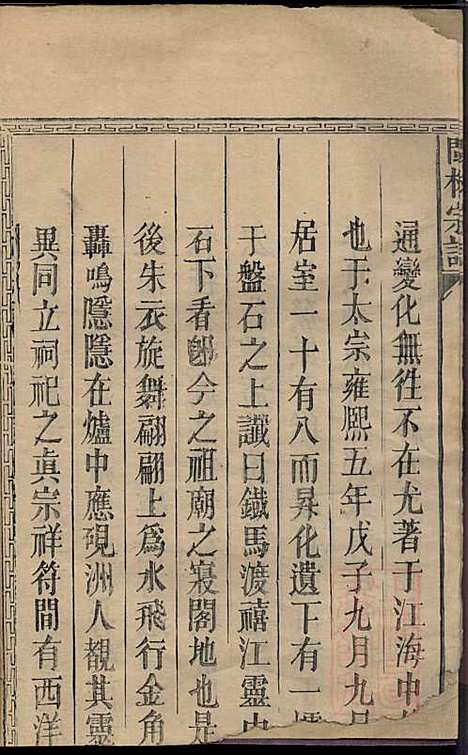 通變化無徃不在尤著于江海中
也于太宗雍熙五年戊子九月九日
居室一十有八而昇化遺下有一
于盤石之上讖曰鐵馬渡禧江靈
石下看卽今之祖廟之寢閣地也是
後朱衣旋舞翩翩上為水飛行金角
轟鳴隱隱在爐中應硯洲人覩其靈
異同立祠祀之眞宗祥符間有西洋